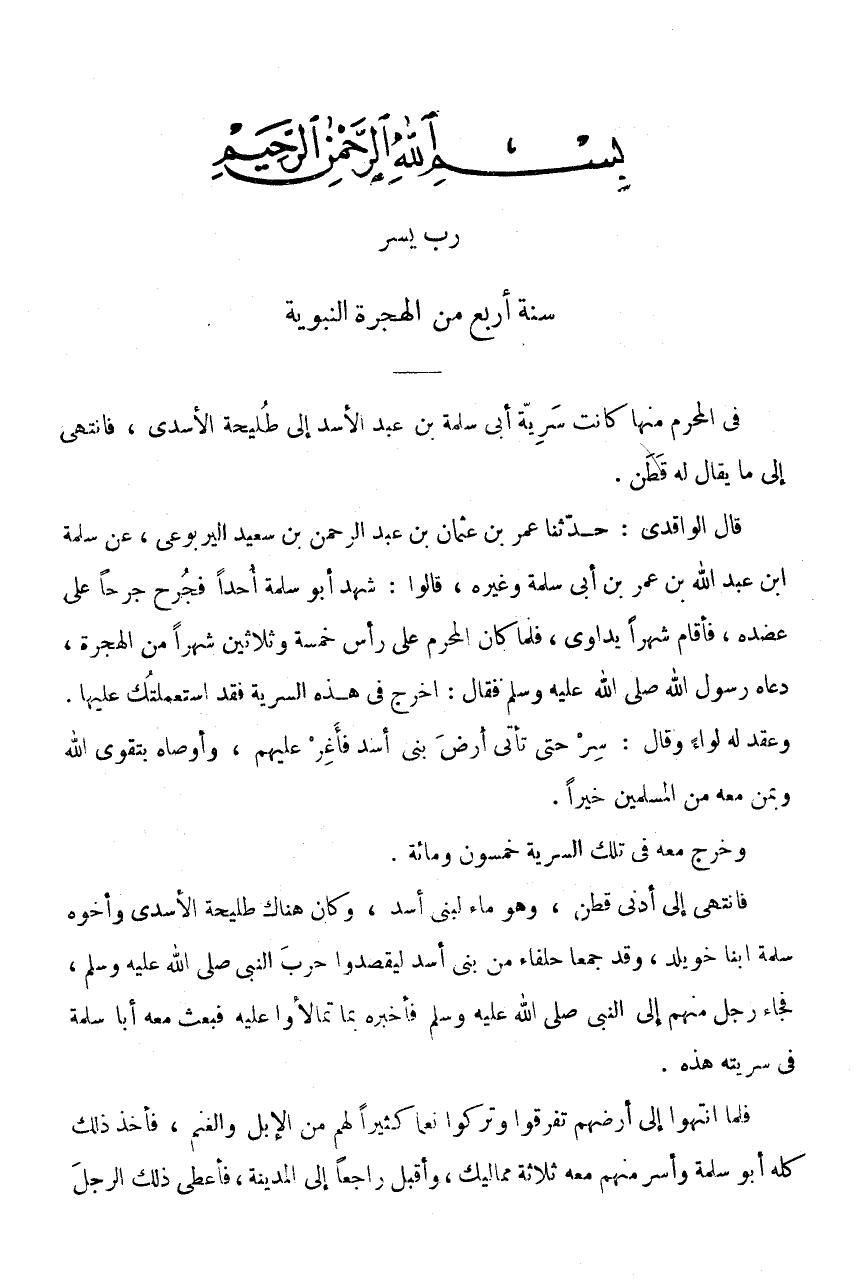 بِسْمِ ٱللَّهِ ٱلرَّحْمٰنِ ٱلرَّحِيمِ
رب يسر
سنة أربع من الهجرة النبوية
فى المحرم منها كانت سَرِيّة أبى سلمة بن عبد الأسد إلى طُليحة الأسدى ، فانتهى
إلى ما يقال له قَطَن .
قال الواقدى : حدّثنا عمر بن عثمان بن عبد الرحمن بن سعيد اليربوعى ، عن سلمة
ابن عبد الله بن عمر بن أبى سلمة وغيره ، قالوا : شهد أبو سلمة أُحداً فجُرح جرحاً على
عضده ، فأقام شهراً يداوى ، فلما كان المحرم على رأس خمسة وثلاثين شهراً من الهجرة ،
دعاه رسول الله صلى الله عليه وسلم فقال : اخرج فى هذه السرية فقد استعملتُك عليها .
وعقد له لواءً وقال : سِرْ حتى تأتى أرضَ بنى أسد فأَغِرْ عليهم ، وأوصاه بتقوى الله
وبمن معه من المسلمين خيراً .
وخرج معه فى تلك السرية خمسون ومائة .
فانتهى إلى أدنى قطن ، وهو ماء لبنى أسد ، وكان هناك طليحة الأسدى وأخوه
سلمة ابنا خويلد ، وقد جمعا حلفاء من بنى أسد ليقصدوا حربَ النبى صلى الله عليه وسلم ،
فجاء رجل منهم إلى النبى صلى الله عليه وسلم فأخبره بما تمالأوا عليه فبعث معه أبا سلمة
فى سريته هذه .
فلما انتهوا إلى أرضهم تفرقوا وتركوا نعما كثيراً لهم من الإبل والغنم ، فأخذ ذلك
كله أبو سلمة وأسر منهم معه ثلاثة مماليك ، وأقبل راجعاً إلى المدينة ، فأعطى ذلك الرجلَ